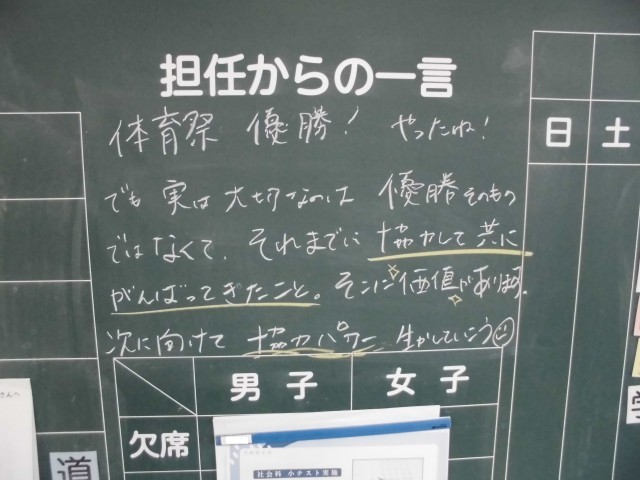 担任からの一言
体育祭 優勝! やったね!
でも 実は 大切なのは 優勝そのもの
ではなくて、それまでに 協力して 共に
がんばってきたこと。そこに価値があります。
次に向けて 協力パワー 生かしていこう
日 土
男子 女子
欠席
道
学
さんへ
社会科 小テスト実施